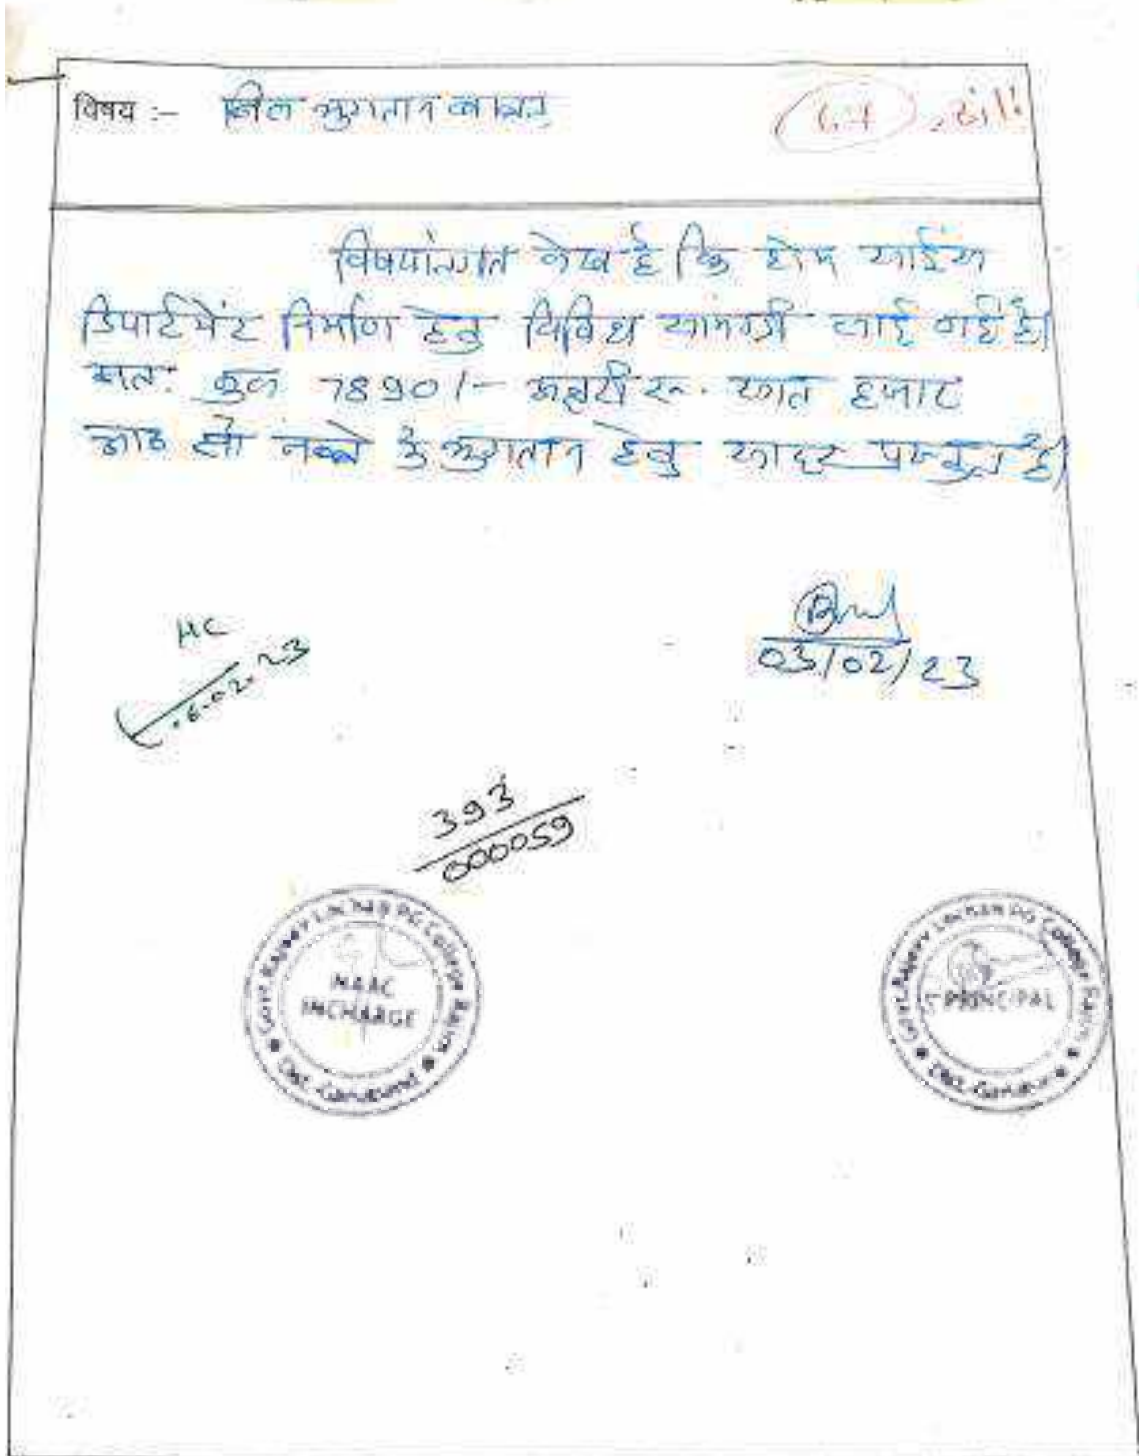 विषय :- बिल भुगतान बाबत
विषयांतर्गत लेख है कि होम साईंस
डिपार्टमेंट निर्माण हेतु विविध सामग्री लाई गई है।
अतः कुल 7890/- अक्षरी रू. सात हजार
आठ सौ नब्बे के भुगतान हेतु सादर प्रस्तुत है।
HC
03/02/23
.02.23
393
000059
Govt. Rajeev Lochan PG College Rajim
NAAC
INCHARGE
Dist.-Gariaband
Govt. Rajeev Lochan PG College Rajim
PRINCIPAL
Dist.-Gariaband